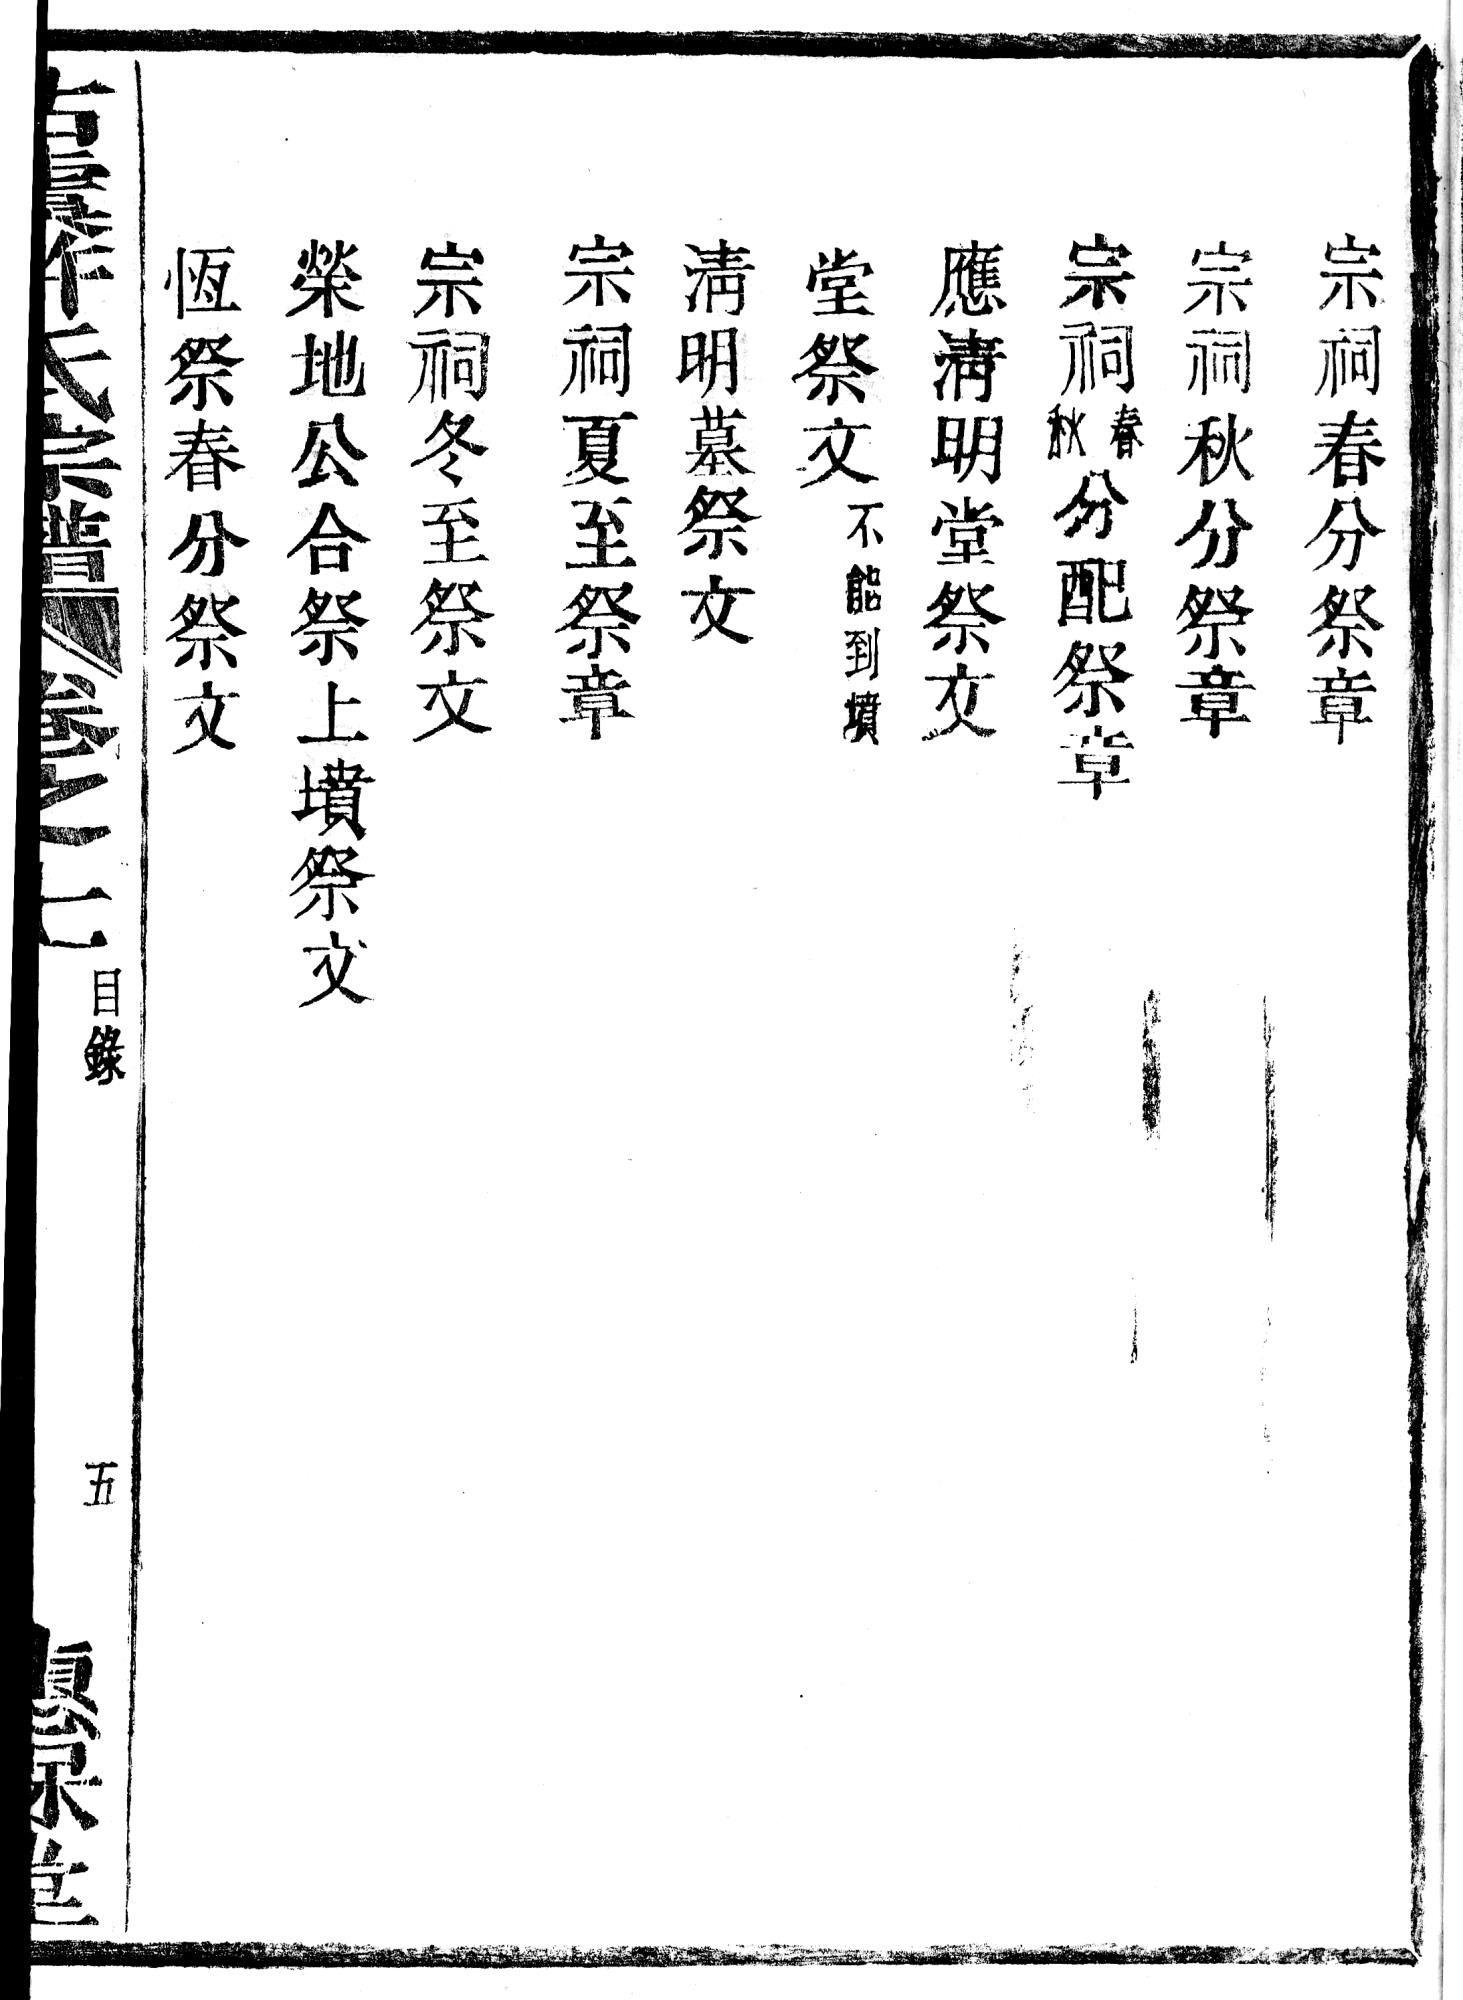 宗祠春分祭章
宗祠秋分祭章
宗祠春秋分配祭章
應淸明堂祭文
堂祭文不能到墳
淸明墓祭文
宗祠夏至祭章
宗祠冬至祭文
榮地公合祭上墳祭文
恆祭春分祭文
氏宗譜 卷之七 目錄 五 堂